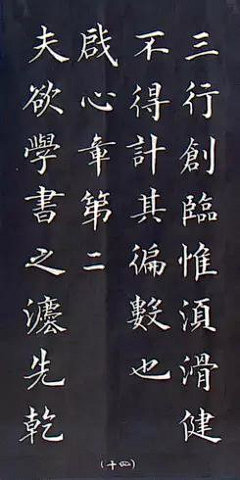 三行創臨惟湏滑健
不得計其徧數也
啟心章第二
夫欲學書之瀍先乾
(十四)